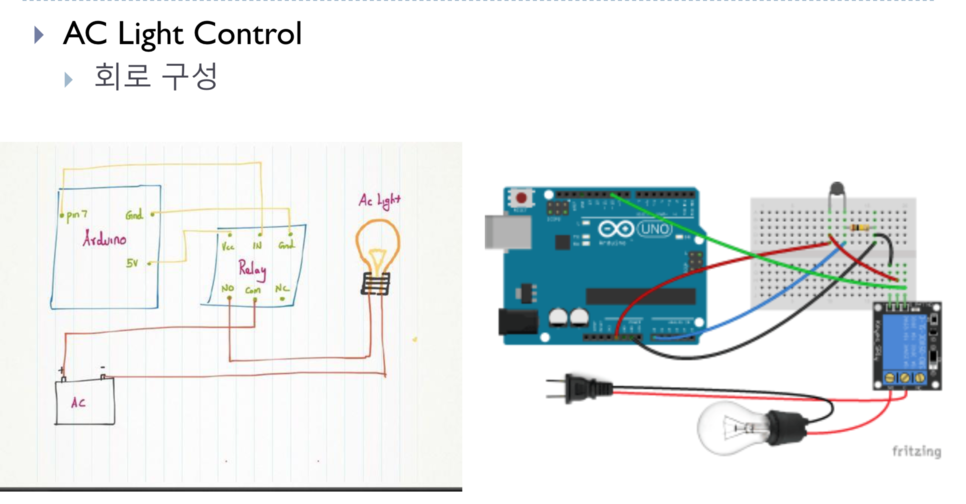 AC Light Control
회로 구성
Ac Light
pin 7
Gnd
Arduino
5V
Vcc IN Gnd
Relay
NO Com NC
+ -
AC
UNO
Arduino
fritzing